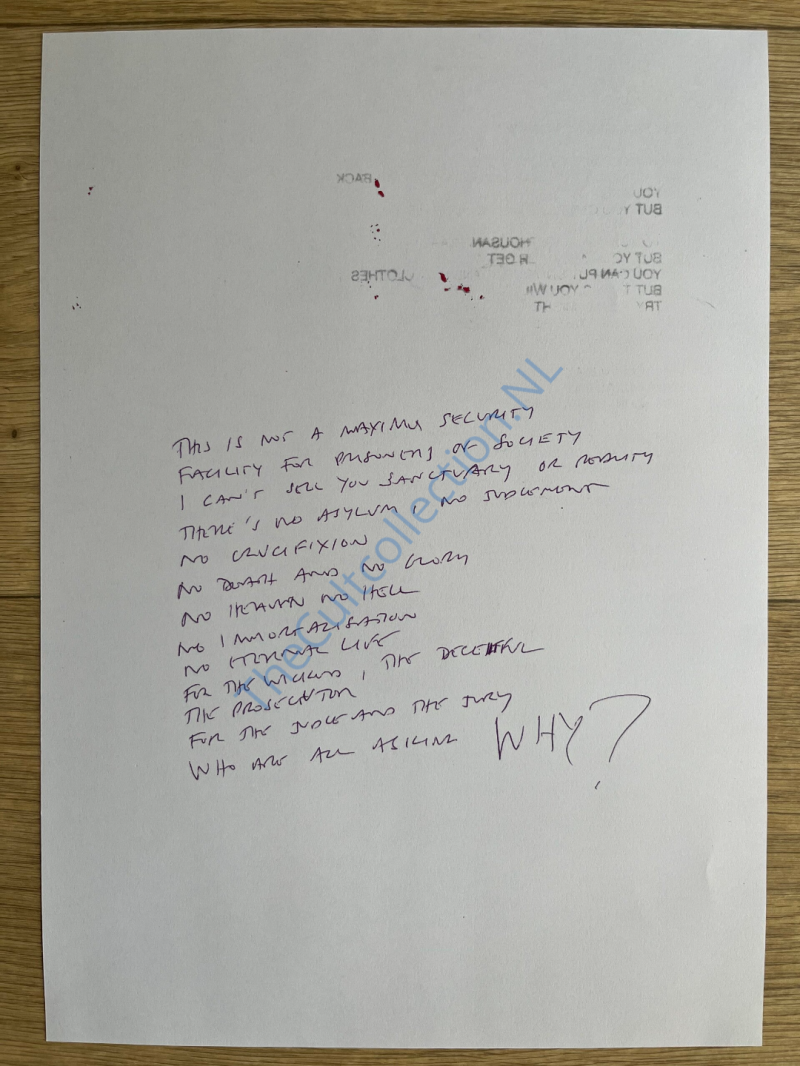 BACK
YOU
BUT Y
HOUSAN
BUT YC R GET
YOU CAN PU CLOTHES
BUT T YOU WI
TRY HT
THIS IS NOT A MAXIMU SECURITY
FACILITY FOR PRISONERS OF SOCIETY
I CAN'T SELL YOU SANCTUARY OR REALITY
THERE'S NO ASYLUM, NO JUDGEMENT
NO CRUCIFIXION
NO DEATH AND NO GLORY
NO HEAVEN NO HELL
NO IMMORTALISATION
NO ETERNAL LIFE
FOR THE WICKED, THE DECEITFUL
THE PROSECUTOR
FOR THE JUDGE AND THE JURY
WHO ARE ALL ASKING WHY?
TheCultcollection.NL